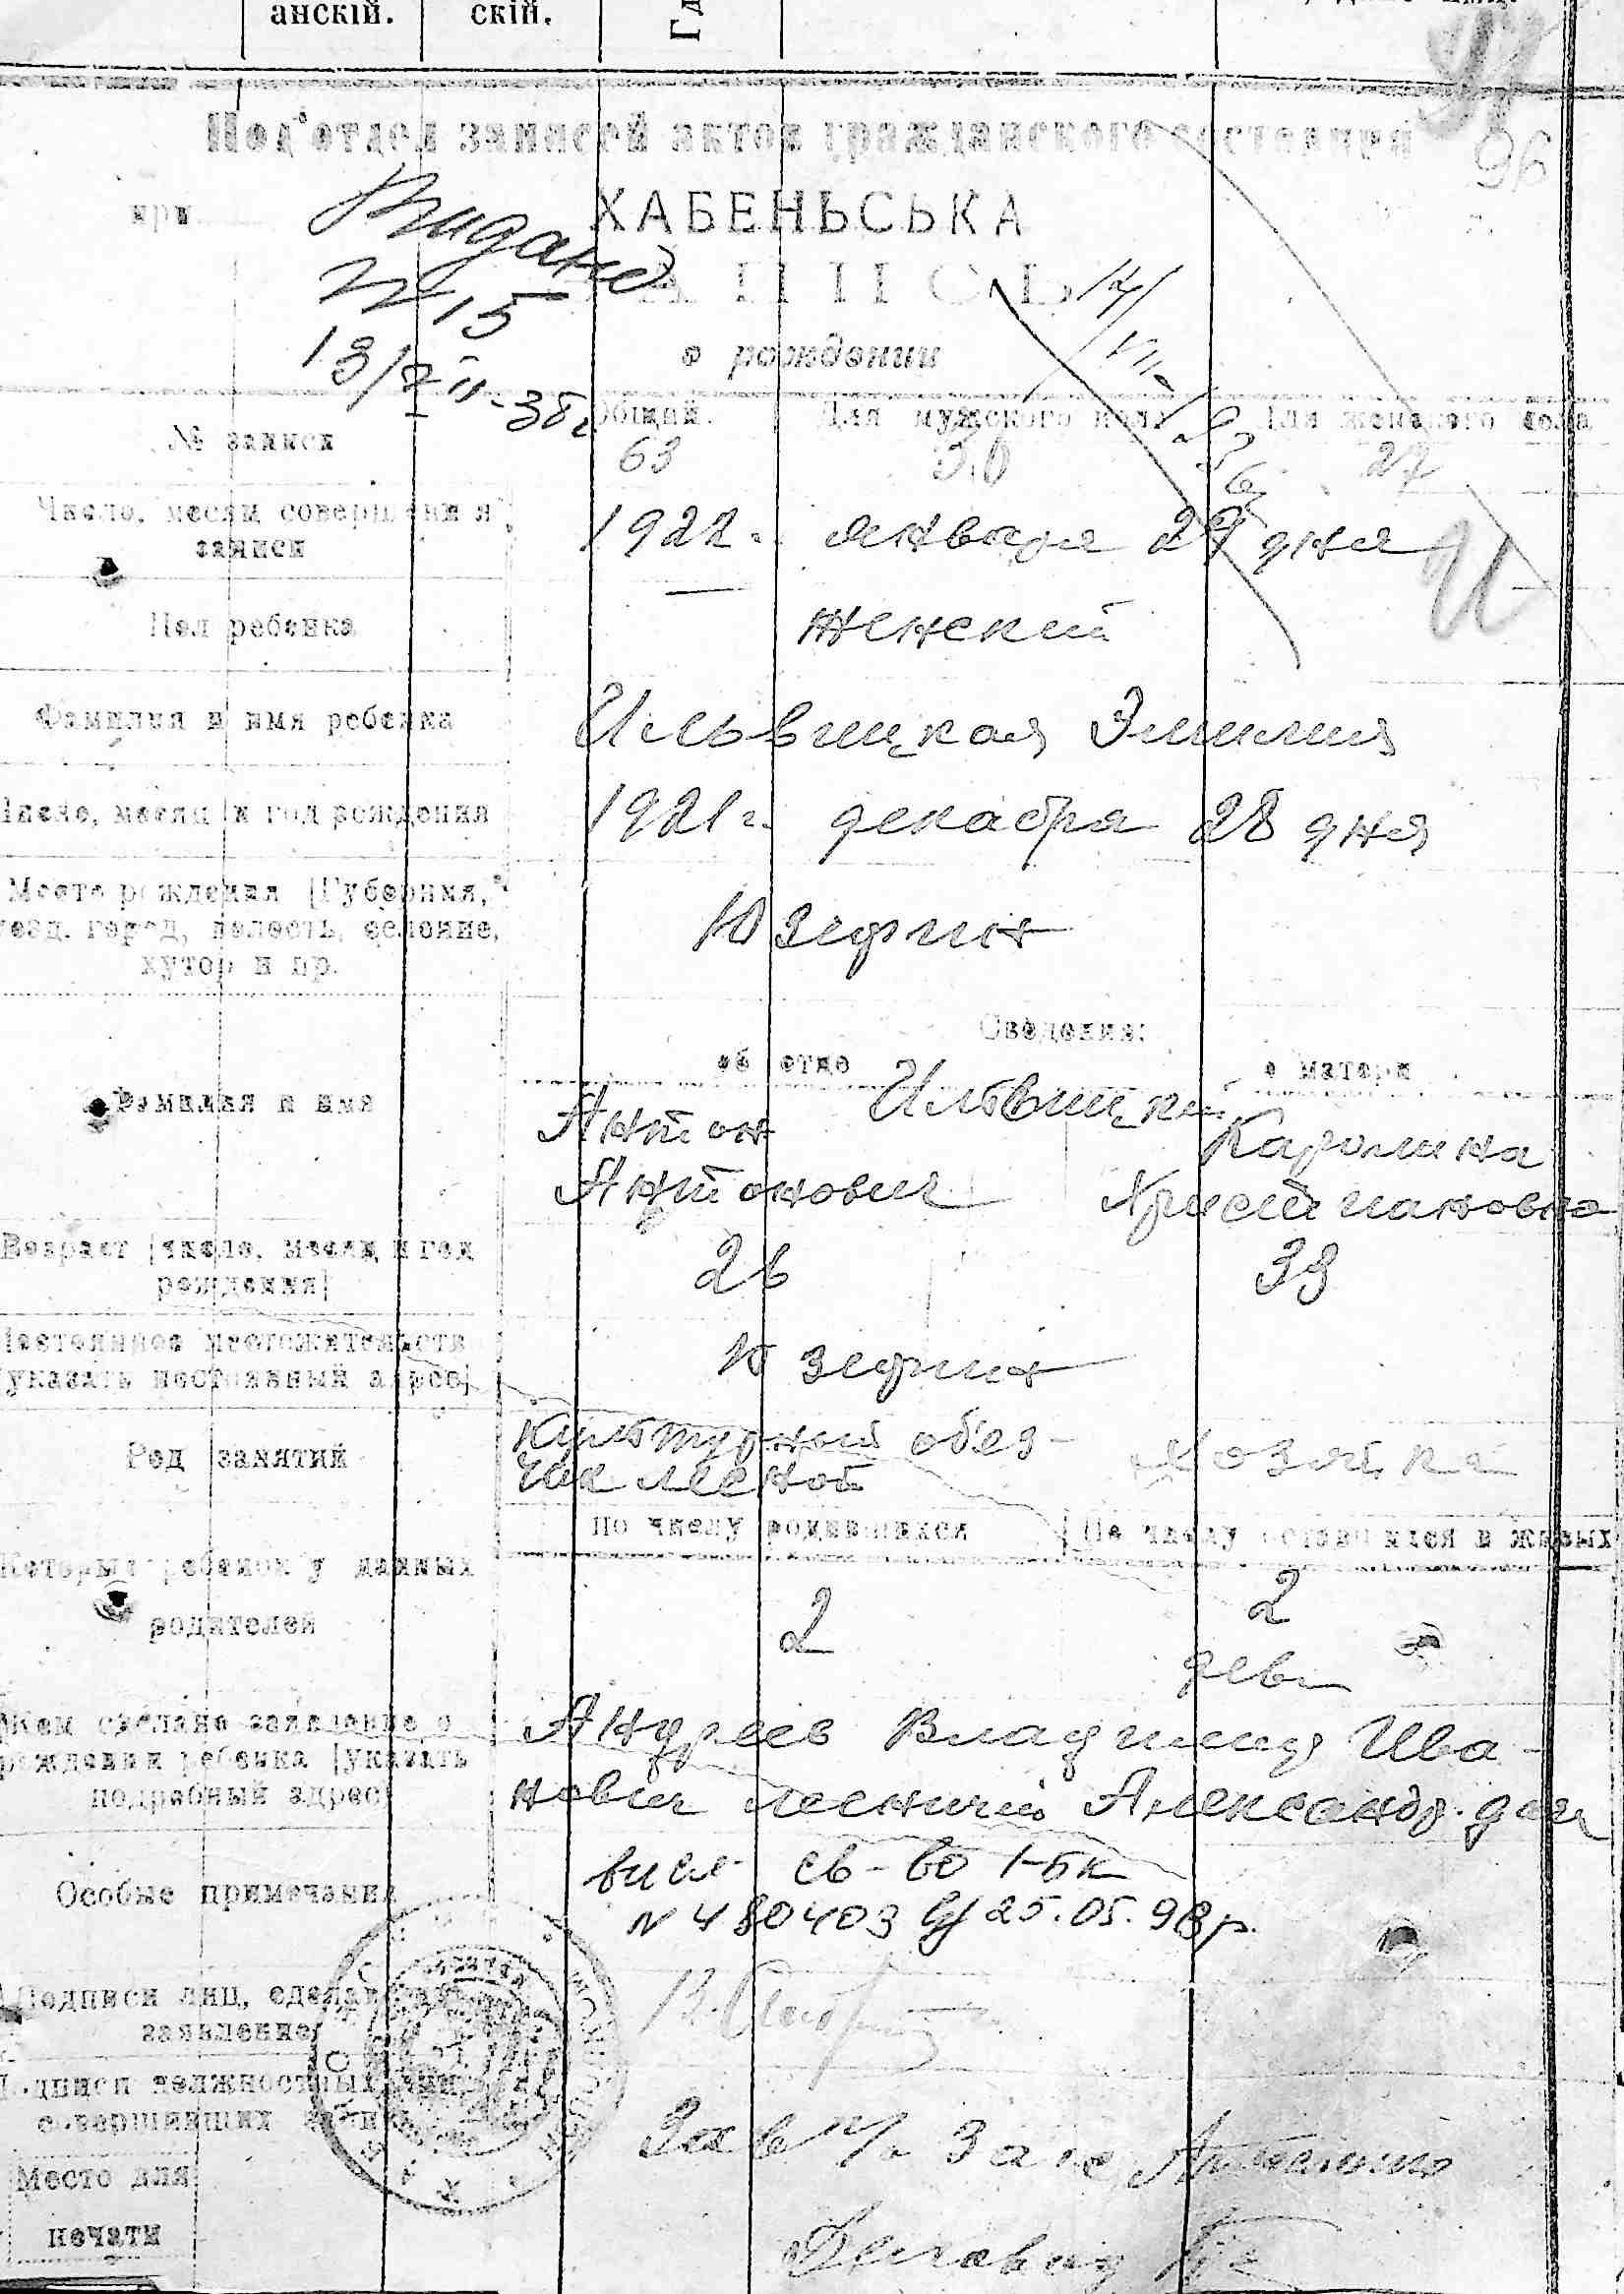 анскій.
скій.
96
Под'отдел записей актов гражданского состояния
при
ХАБЕНЬСЬКА
ЗАПИСЬ
о рождении
Видано
№ 15
№ записи
Общий.
Для мужского пола
Для женского пола
63
30
27
Число, месяц совершения
записи
1922 г. января 27 дня
Пол ребенка
женский
Фамилия и имя ребенка
Ильвицкая Эмилия
Число, месяц и год рождения
1921 г. декабря 28 дня
Место рождения (Губерния,
уезд, город, волость, селение,
хутор и пр.
Юзефин
Сведения:
об отце
о матери
Фамилия и имя
Ильвицкий
Антон
Каролина
Антонович
Християновна
Возраст (число, месяц и год
рождения)
26
39
Постоянное местожительство
(указать постоянный адрес)
Юзефин
Род занятий
Культурный объез-
чик лесной
Хозяйка
по числу родившихся
По числу оставшихся в живых
Который ребенок у данных
родителей
2
2
Кем сделано заявление о
рождении ребенка (указать
подробный адрес)
Андреев Владимир Ива-
нович лесничий Александр. дачи
Особые примечания
св-во 1-БК
N 480403 від 25.05.98 р.
Подписи лиц, сделавших
заявление
Подписи должностных лиц,
совершивших запись
Место для
печати